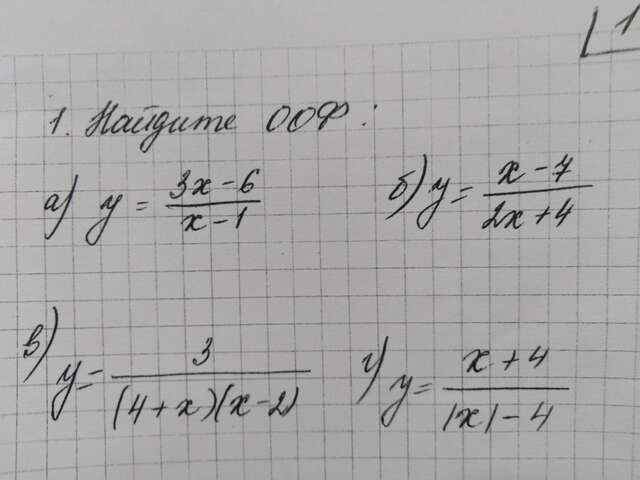 1
1. Найдите ООФ:
а) y = (3x-6)/(x-1)
б) y = (x-7)/(2x+4)
в) y = 3/((4+x)(x-2))
г) y = (x+4)/(|x|-4)